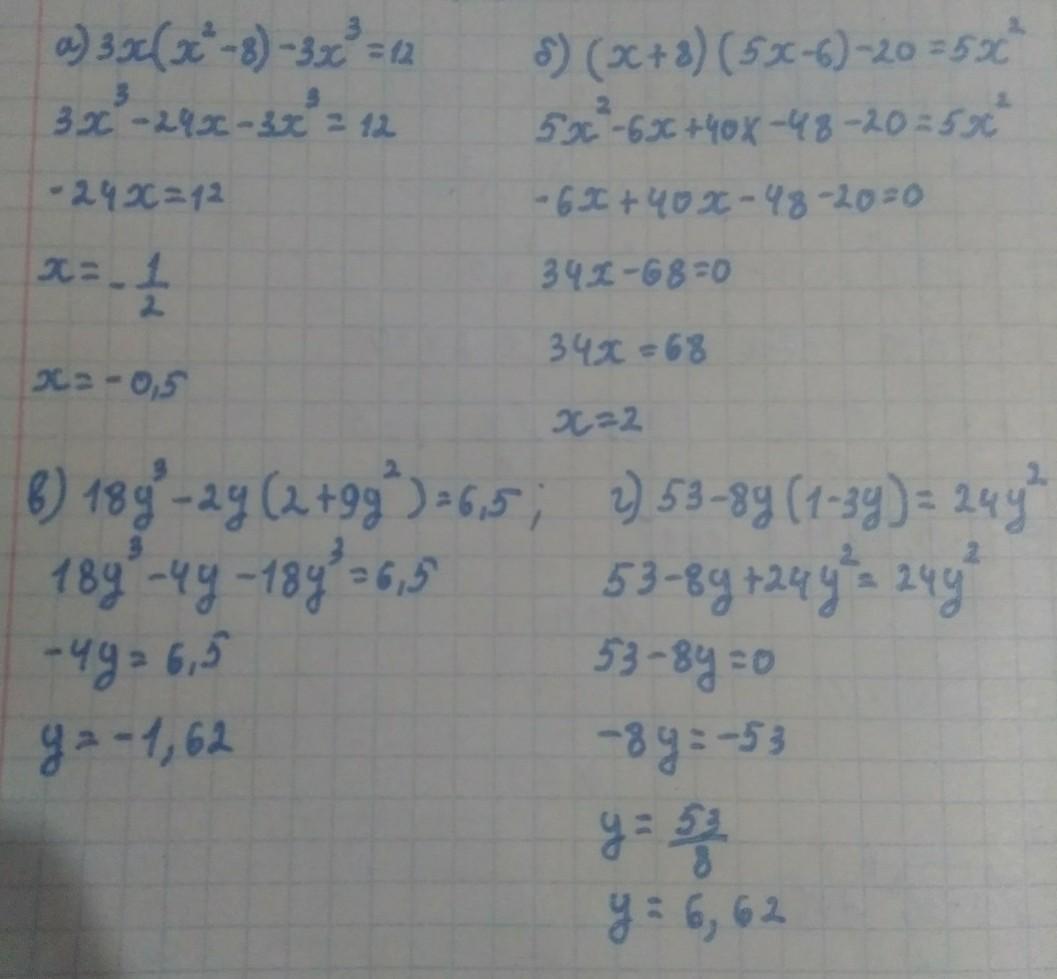 а) 3x(x²-8)-3x³=12
3x³-24x-3x³=12
-24x=12
x=-1/2
x=-0,5
б) (x+8)(5x-6)-20=5x²
5x²-6x+40x-48-20=5x²
-6x+40x-48-20=0
34x-68=0
34x=68
x=2
в) 18y³-2y(2+9y²)=6,5;
18y³-4y-18y³=6,5
-4y=6,5
y=-1,62
г) 53-8y(1-3y)=24y²
53-8y+24y²=24y²
53-8y=0
-8y=-53
y=53/8
y=6,62